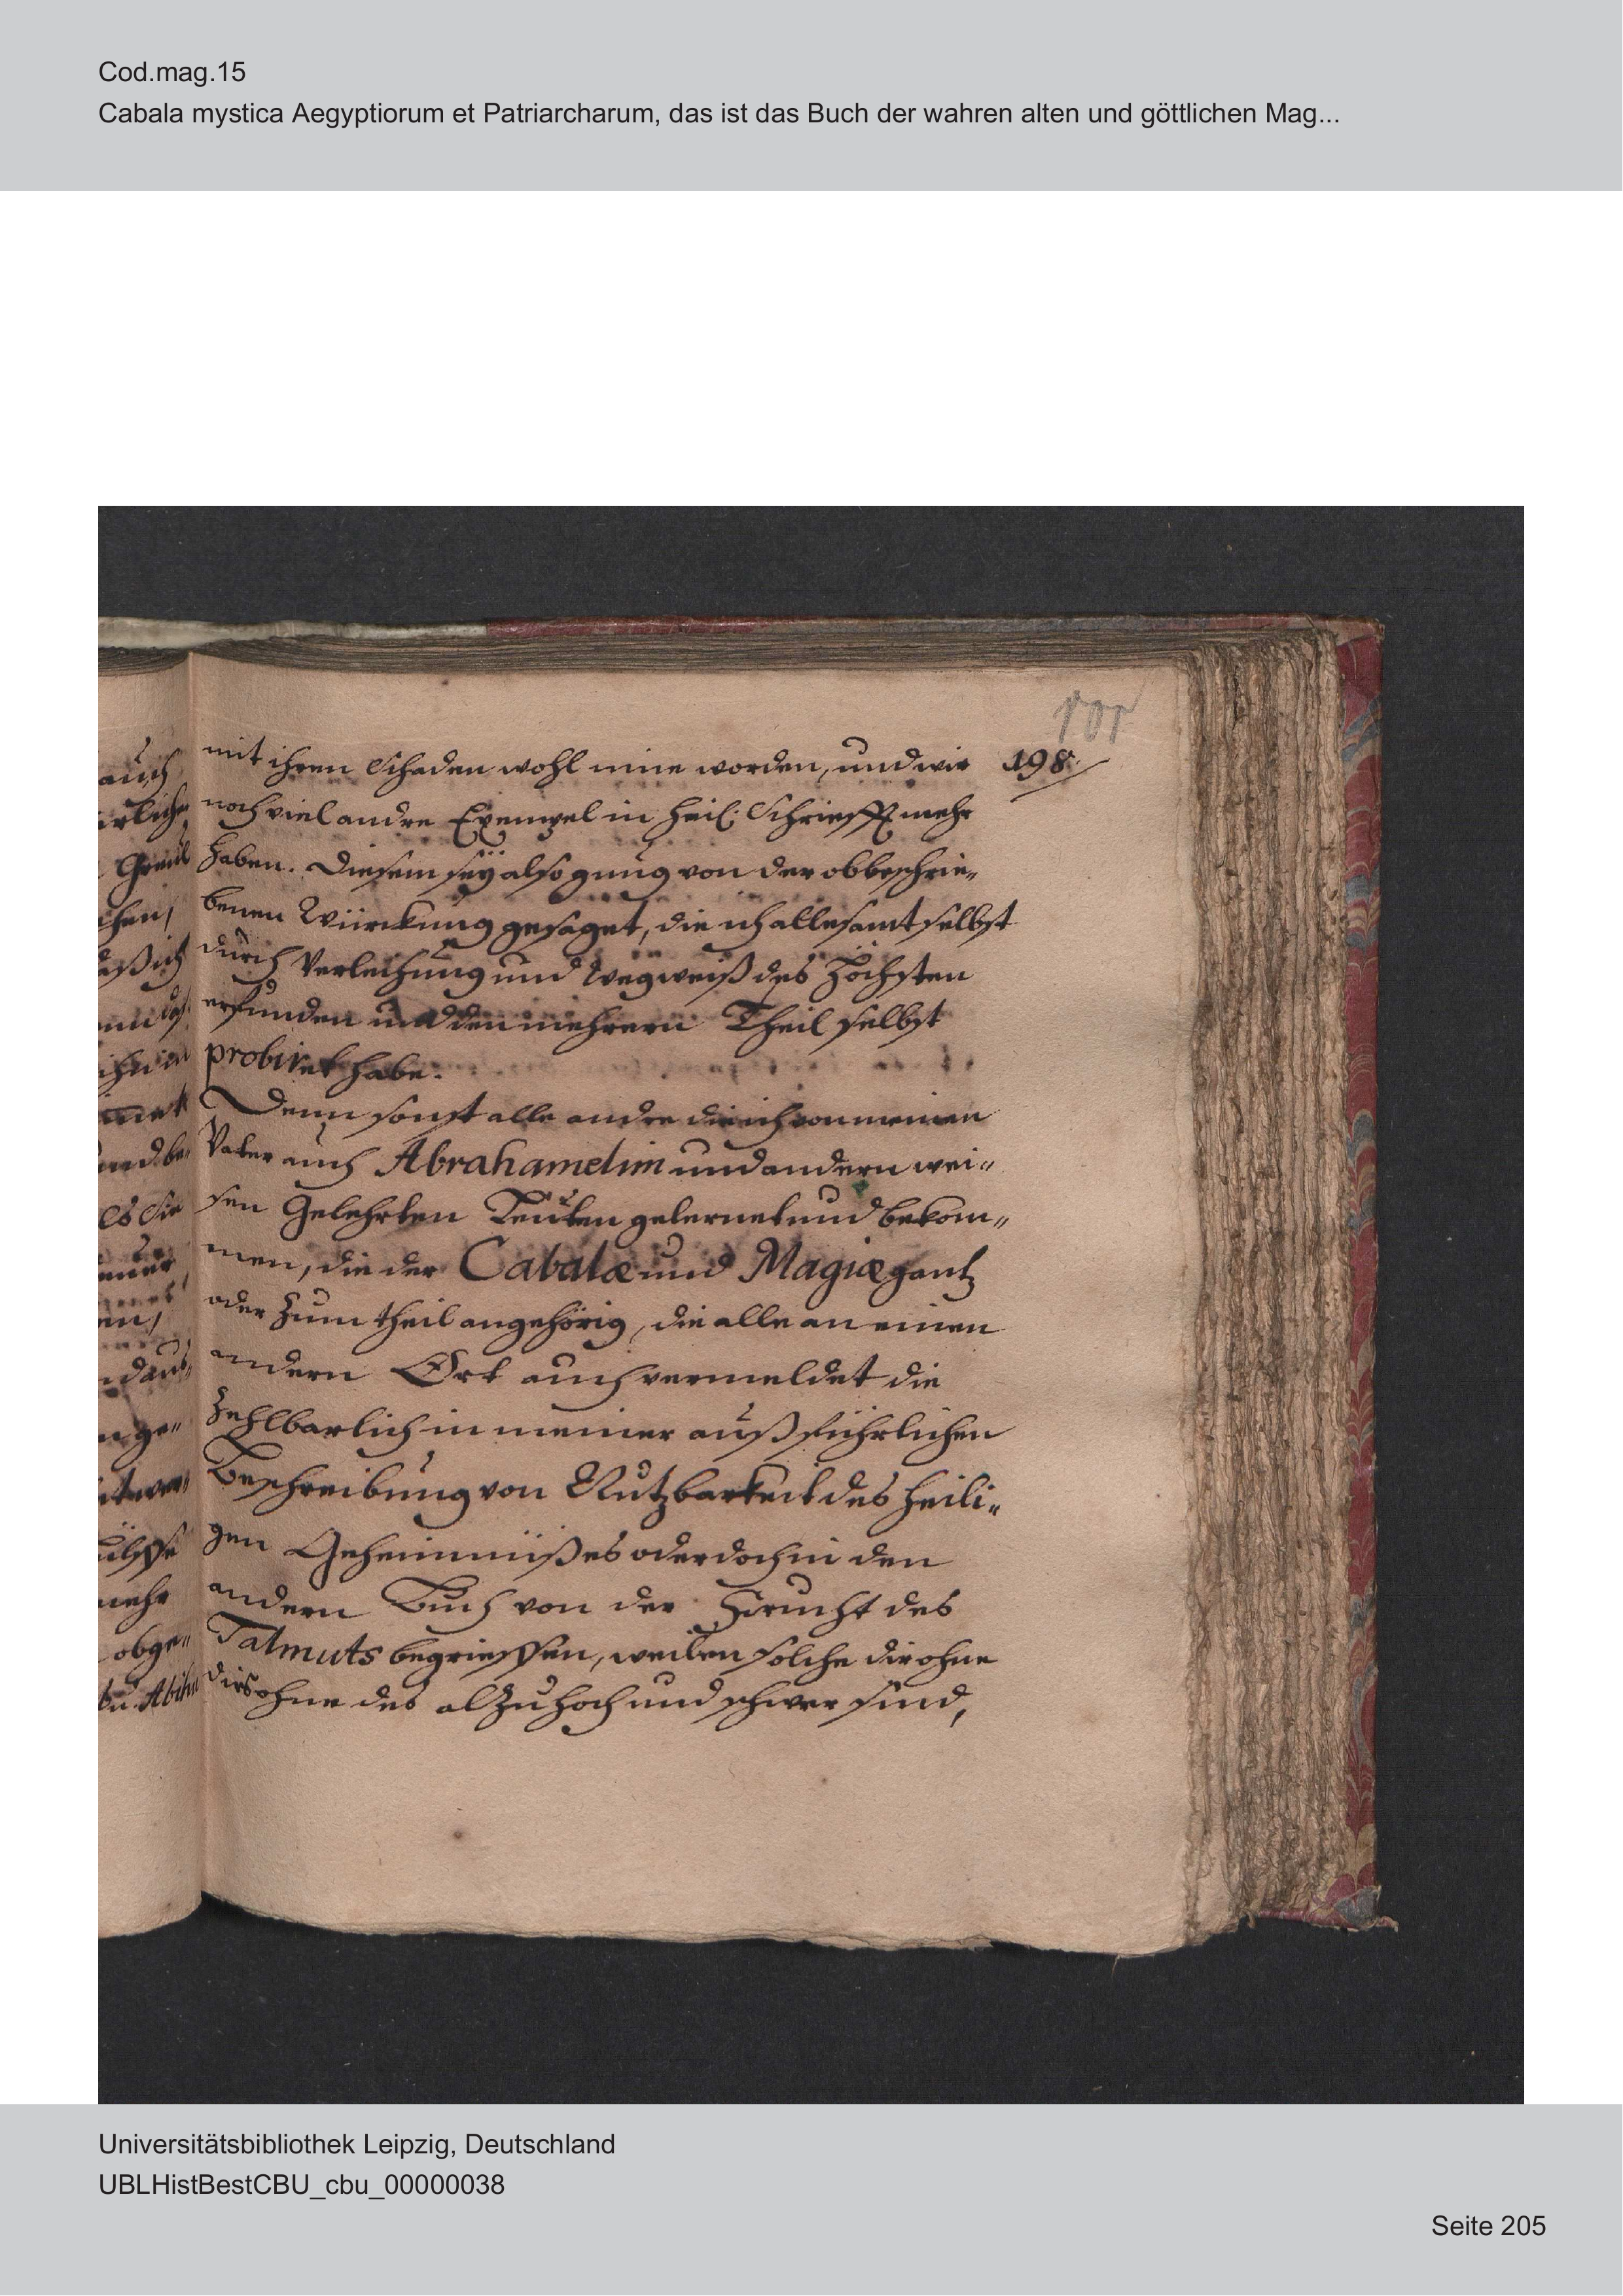 Cod.mag.15
Cabala mystica Aegyptiorum et Patriarcharum, das ist das Buch der wahren alten und göttlichen Mag...
mit ihren Schaden wohl inne worden, und wir 198
noch viel andre Exempel in Heil. Schriefft mehr
haben. Diesem seÿ also gnung von der obbeschrie„
benen Würckung gesaget, die ich allesamt selbst
durch Verleihung und Wegweiß des Höchsten
erfunden und den mehrern Theil selbst
probiret habe.
Denn sonst alle andre die ich von meinen
Vater auch Abrahamelim und andern wei„
sen Gelehrten Leuten gelernet und bekom„
men, die der Cabalæ und Magiæ gantz
oder zum theil angehörig, die alle an einen
andern Ort auch vermeldet die
zehlbarlich in meiner außführlichen
Beschreibung von Nutzbarkeit des heili„
gen Geheimnüßes oder doch in den
andern Buch von der Frucht des
Talmuts begrieffen, weilen solche dir ohne
dis ohne des alzuhoch und schwer sind,
auch
Greul
daß ich
und be„
es sie
n ge„
mehr
obge„
Universitätsbibliothek Leipzig, Deutschland
UBLHistBestCBU_cbu_00000038
Seite 205